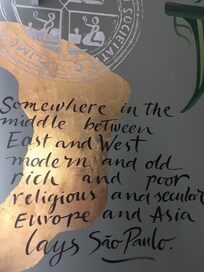 SOCIETAT
Somewhere in the
middle between
East and West
modern and old
rich and poor
religious and secular
Europe and Asia
lays São Paulo.